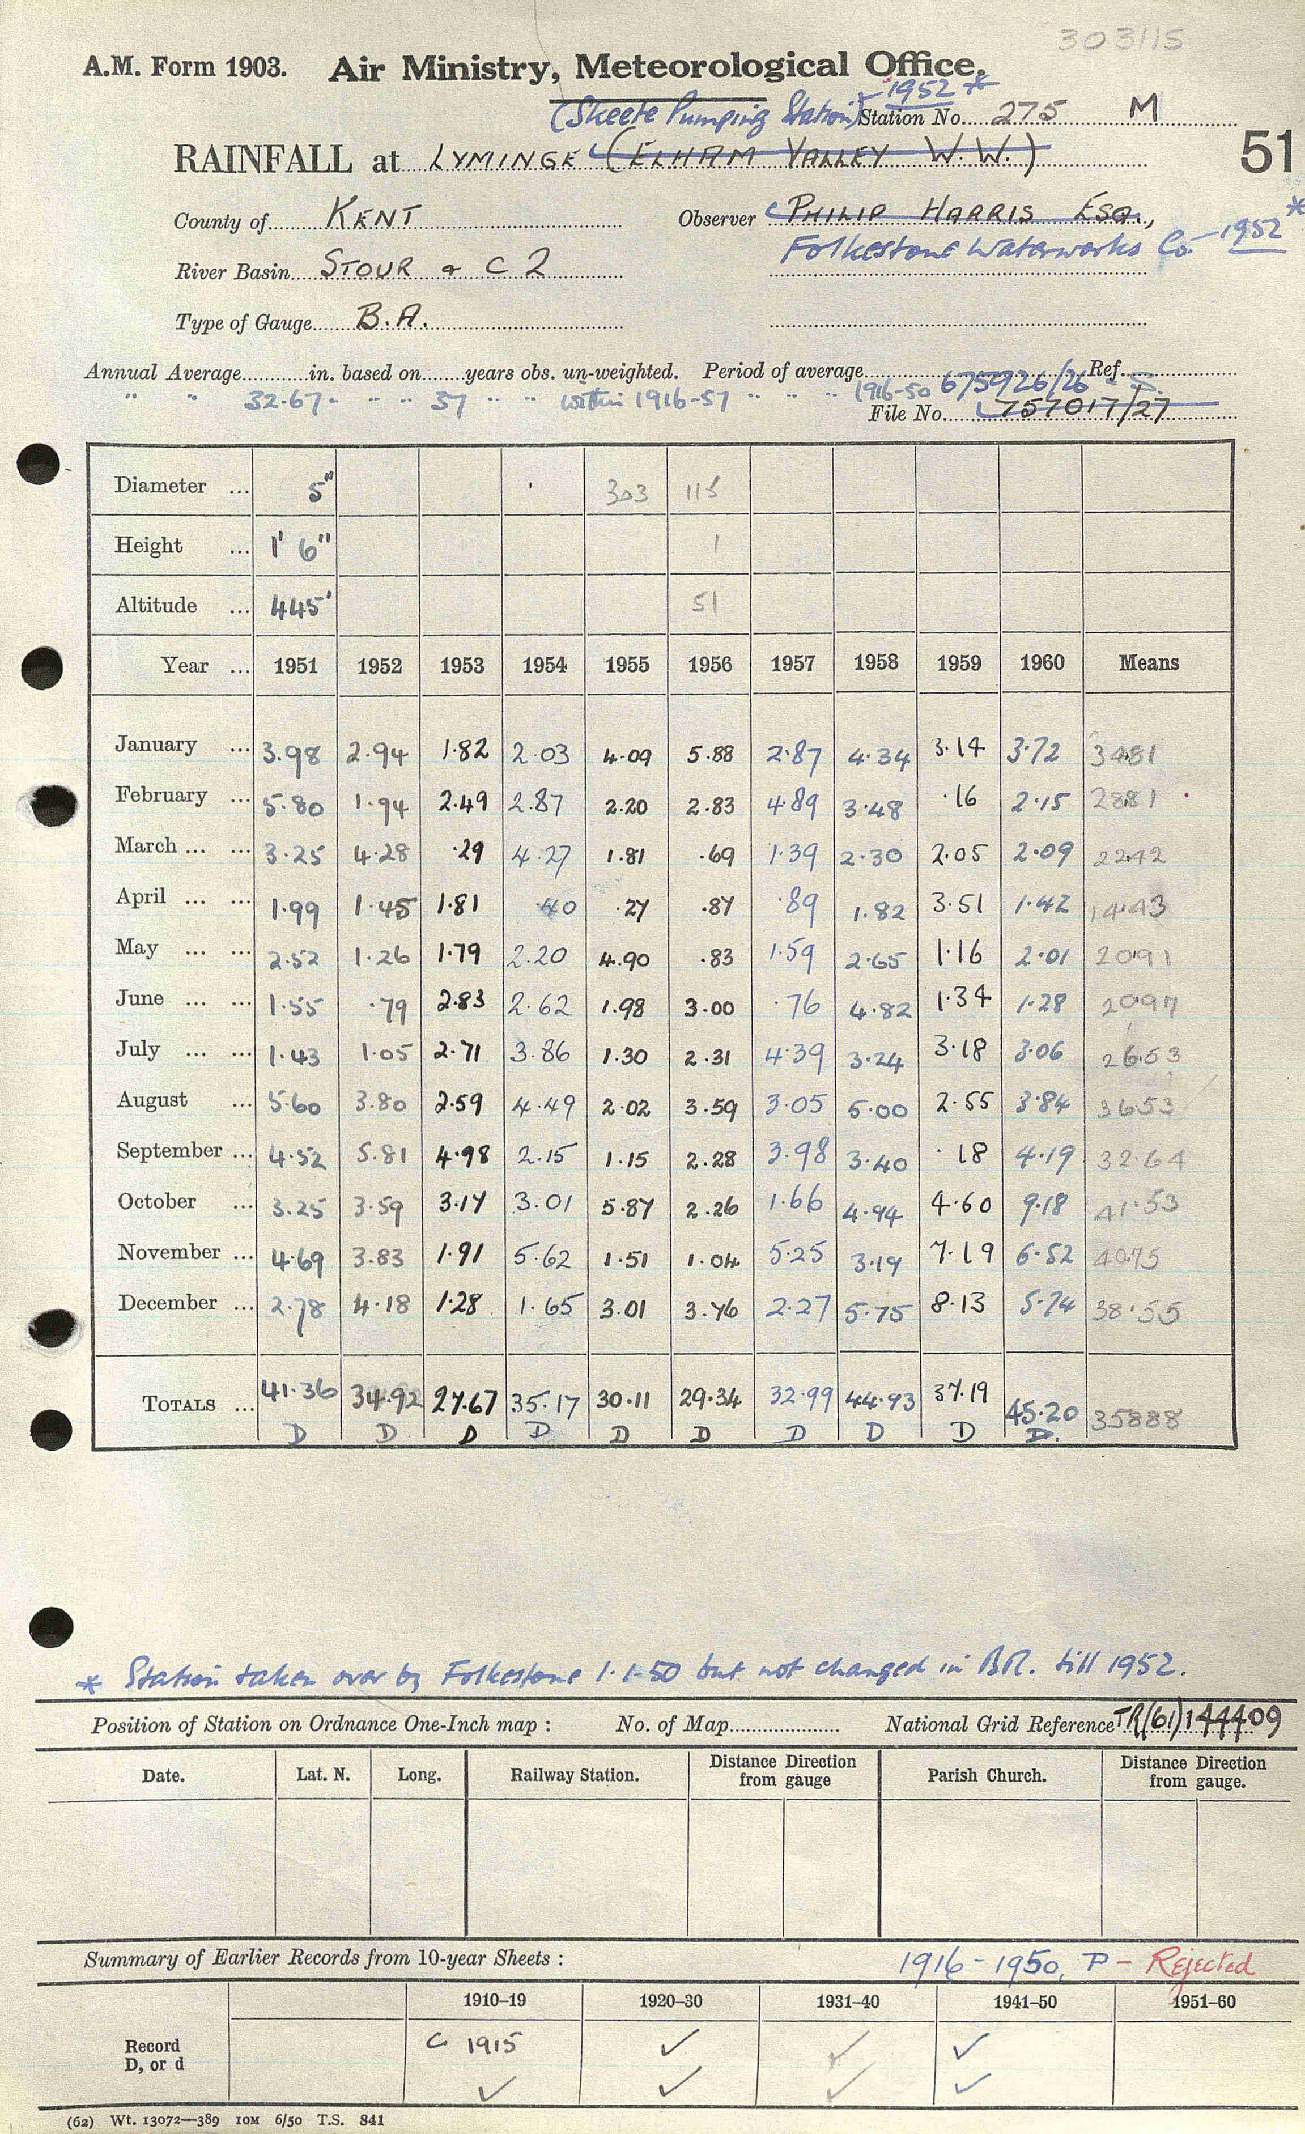 303115
A.M. Form 1903. Air Ministry, Meteorological Office.
(Skeete Pumping Station) 1952 *
Station No. 275 M
51
RAINFALL at LYMINGE (ELHAM VALLEY W.W.)
County of KENT Observer PHILIP HARRIS ESQ.,
Folkestone Waterworks Co 1952 *
River Basin STOUR & C2
Type of Gauge B.A.
Annual Average in. based on years obs. un-weighted. Period of average Ref.
" " 32.67 " " " 37 " " within 1916-57 " " " 1916-50 675926/26
File No. 757017/27
Diameter ... 5" 303 115
Height ... 1' 6" 1
Altitude ... 445' 51
Year ... 1951 1952 1953 1954 1955 1956 1957 1958 1959 1960 Means
January ... 3.98 2.94 1.82 2.03 4.09 5.88 2.87 4.34 3.14 3.72 3481
February ... 5.80 1.94 2.49 2.87 2.20 2.83 4.89 3.48 .16 2.15 2881
March ... ... 3.25 4.28 .29 4.27 1.81 .69 1.39 2.30 2.05 2.09 2242
April ... ... 1.99 1.45 1.81 40 .27 .87 .89 1.82 3.51 1.42 1443
May ... ... 2.52 1.26 1.79 2.20 4.90 .83 1.59 2.65 1.16 2.01 2091
June ... ... 1.55 .79 2.83 2.62 1.98 3.00 .76 4.82 1.34 1.28 2097
July ... ... 1.43 1.05 2.71 3.86 1.30 2.31 4.39 3.24 3.18 3.06 2653
August ... 5.60 3.80 2.59 4.49 2.02 3.59 3.05 5.00 2.55 3.84 3653
September ... 4.52 5.81 4.98 2.15 1.15 2.28 3.98 3.40 .18 4.19 32.64
October ... 3.25 3.59 3.17 3.01 5.87 2.26 1.66 4.94 4.60 9.18 41.53
November ... 4.69 3.83 1.91 5.62 1.51 1.04 5.25 3.19 7.19 6.52 4075
December ... 2.78 4.18 1.28 1.65 3.01 3.76 2.27 5.75 8.13 5.74 38.55
TOTALS ... 41.36 34.92 27.67 35.17 30.11 29.34 32.99 44.93 37.19 45.20 35888
D D D D D D D D D D.
* Station taken over by Folkestone 1.1.50 but not changed in B.R. till 1952.
Position of Station on Ordnance One-Inch map : No. of Map National Grid Reference TR(61)144409
Date. Lat. N. Long. Railway Station. Distance from gauge Direction Parish Church. Distance from gauge. Direction
Summary of Earlier Records from 10-year Sheets : 1916-1950, P - Rejected
1910-19 1920-30 1931-40 1941-50 1951-60
Record D, or d C 1915 ✓ ✓ ✓
✓ ✓ ✓ ✓
(62) Wt. 13072—389 10M 6/50 T.S. 841